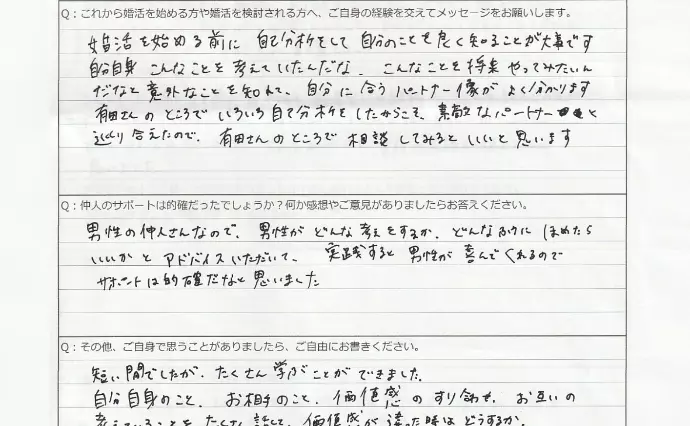 Q：これから婚活を始める方や婚活を検討される方へ、ご自身の経験を交えてメッセージをお願いします。
婚活を始める前に 自己分析をして 自分のことを良く知ることが大事です
自分自身 こんなことを考えていたんだな、こんなことを将来やってみたいん
だなと意外なことを知れて、自分に合うパートナー像がよく分かります
有田さんのところでいろいろ自己分析をしたからこそ、素敵なパートナーと
巡り合えたので、有田さんのところで相談してみるといいと思います
Q：仲人のサポートは的確だったでしょうか？何か感想やご意見がありましたらお答えください。
男性の仲人さんなので、男性がどんな考えをするか、どんなふうにほめたら
いいかとアドバイスいただいて、実践すると男性が喜んでくれるので
サポートは的確だなと思いました
Q：その他、ご自身で思うことがありましたら、ご自由にお書きください。
短い間でしたが、たくさん学ぶことができました。
自分自身のこと、お相手のこと、価値感のすり合わせ、お互いの
考えていることをたくさん話して、価値感が違った時はどうするか、